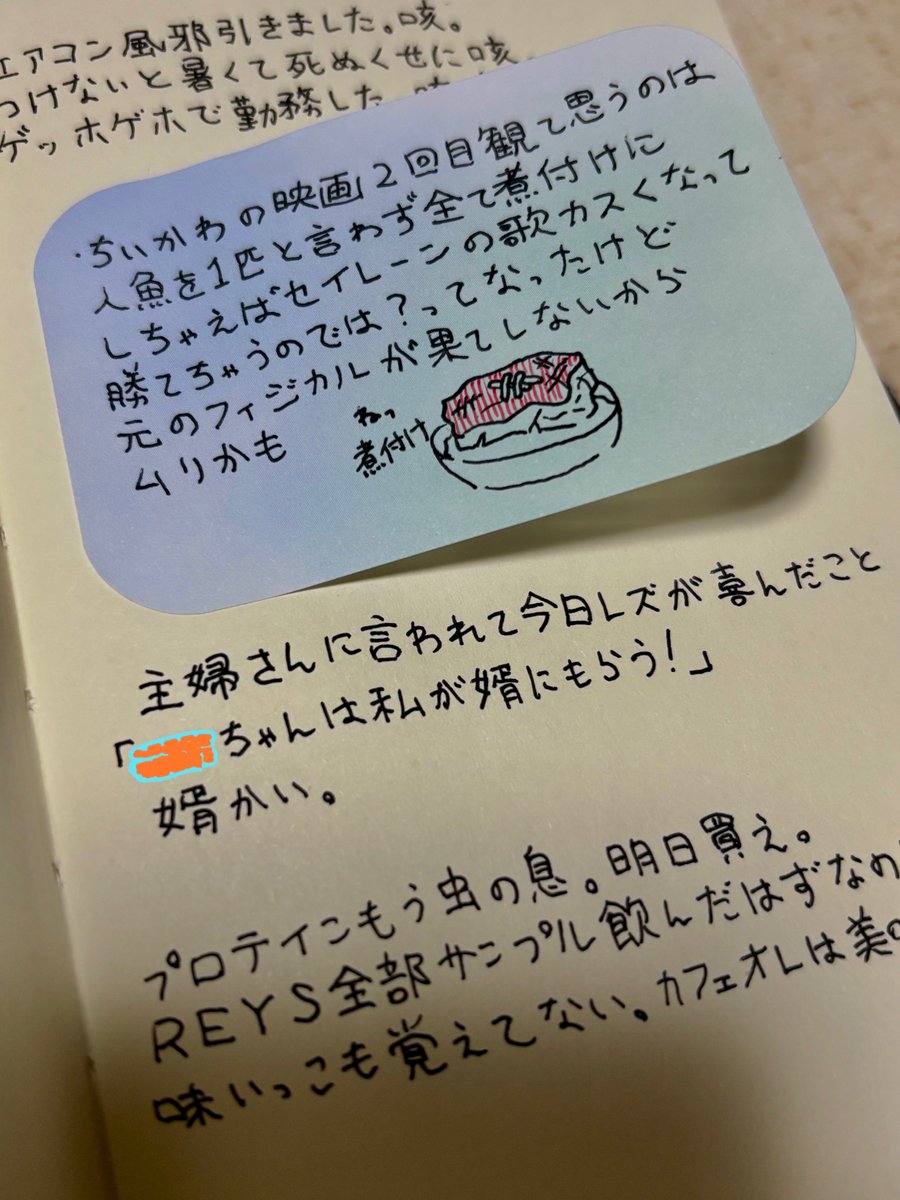 エアコン風邪引きました。咳。
つけないと暑くて死ぬくせに咳。
ゲッホゲホで勤務した。
・ちいかわの映画2回目観て思うのは
人魚を1匹と言わず全て煮付けに
しちゃえばセイレーンの歌カスくなって
勝てちゃうのでは？ってなったけど
元のフィジカルが果てしないから
ムリかも
煮付け
主婦さんに言われて今日レズが喜んだこと
「ちゃんは私が婿にもらう！」
婿かい。
プロテインもう虫の息。明日買え。
REYS全部サンプル飲んだはずなの
味いっこも覚えてない。カフェオレは美